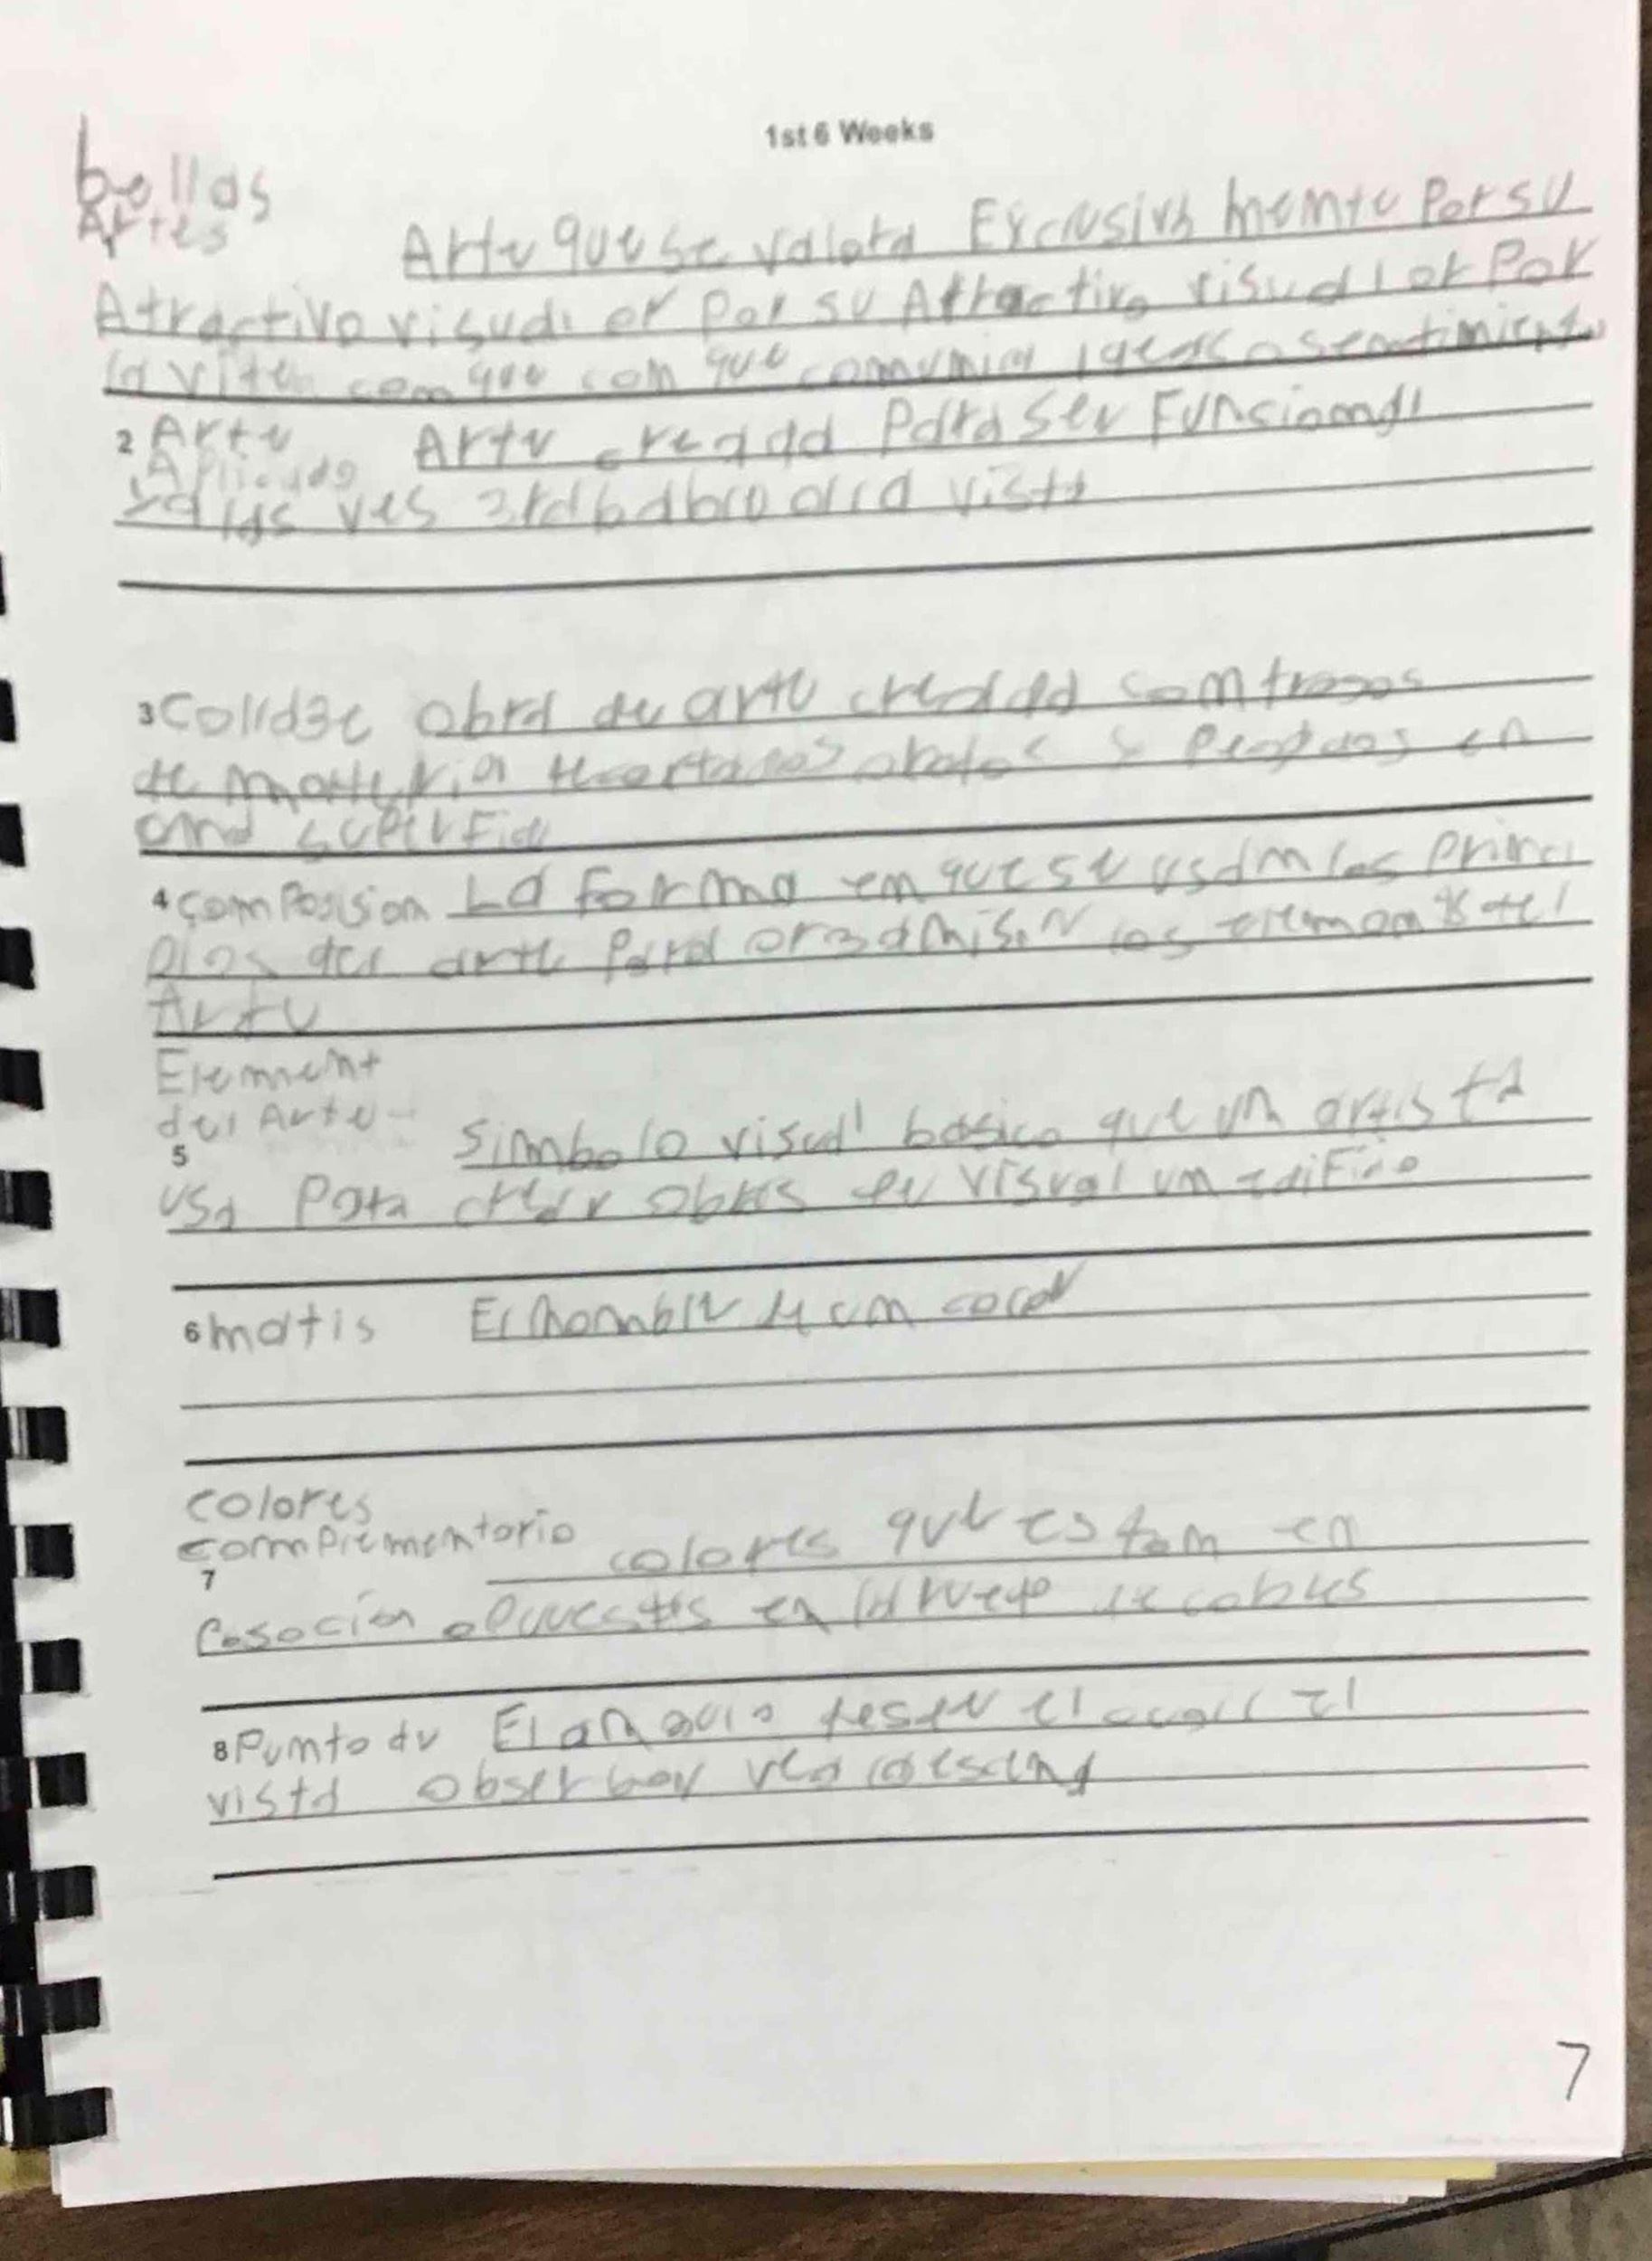 1st 6 Weeks
bellas
Artes
Arte que se valora Exclusiva memte Por su
Atractivo visual or Por su Attractivo visual or Por
la com que com que comumica ideas o seentimiento
2 Arte Arte creada Para Ser Funsioonal
Aplicado
ya las ves a la vista
3 Collage obra de arte creada com trosos
de materia recortados y Pegados en
una superFicie
4 composision La Forma em que se usam los princi
pios del arte Para los del
Arte
Element
del Arte-
5 Simbolo visual basico que um artista
usa Para crear obras visual um ediFicio
6 matis El nombre de um color
colores
complementario
7 colores que estam en
Posocion opuestas en la rueda de colores
8 Punto de El angulo desde el cual el
vista obserbor vea la esena
7